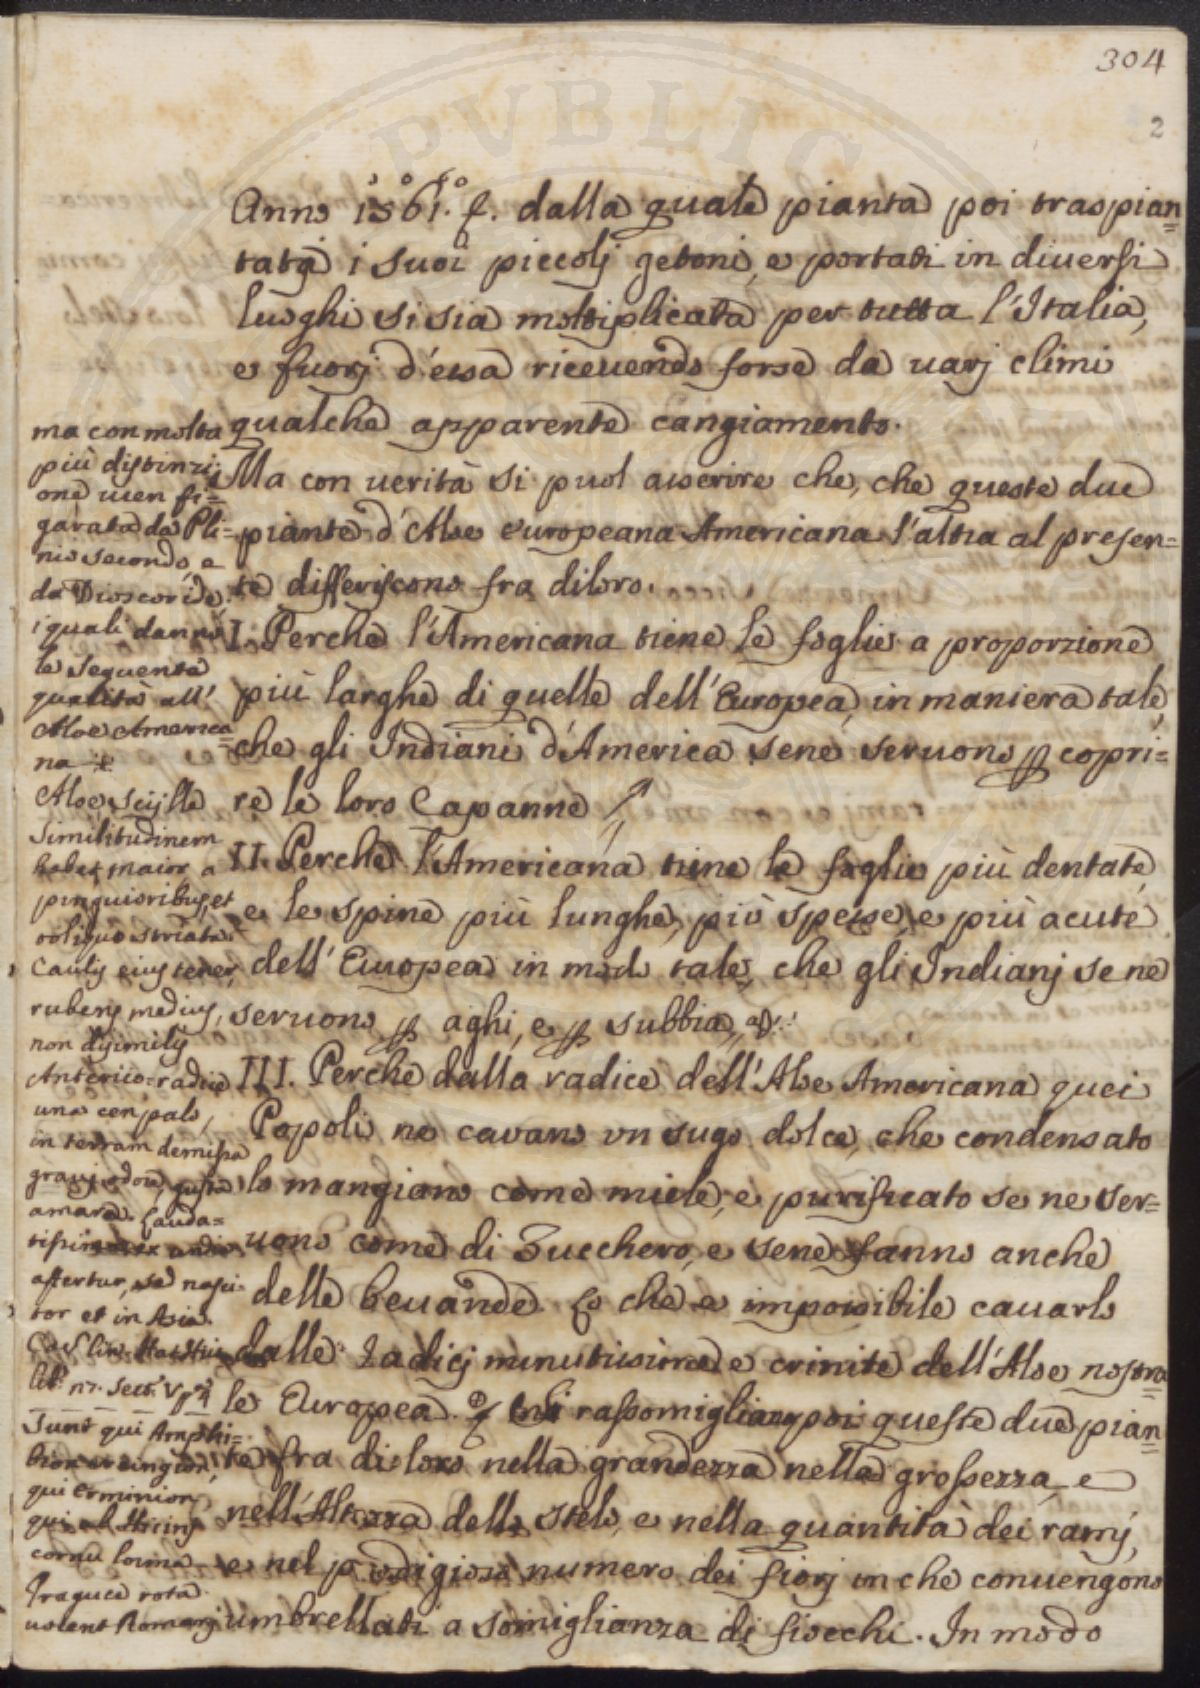 304
2
Anno 1561. f. dalla quale pianta poi traspian=
tata i suoi piccolj getoni, e portati in diversi
luoghi si sia moltiplicata per tutta l'Italia,
e fuorj d'essa ricevendo forse da varj climi
qualche apparente cangiamento.
Ma con verità si puol asserire che, che queste due
piante d'Aloe europeana Americana l'altra al presen=
te differiscono fra diloro.
I. Perche l'Americana tiene le foglie a proporzione
più larghe di quelle dell'Europea, in maniera tale,
che gli Indiani d'America sene servono p copri=
re le loro Capanne
II. Perche l'Americana tiene le foglie più dentate,
e le spine più lunghe, più spesse, e più acute
dell'Europea in modo tale, che gli Indianj se ne
servono p aghi, e p subbia,
III. Perche dalla radice dell'Aloe Americana quei
Popoli ne cavano vn sugo dolce, che condensato
lo mangiano come miele, e purificato se ne ser=
vono come di Zucchero, e sene fanno anche
delle bevande. Lo che e impossibile cavarlo
dalle radicj minutissime e crinite dell'Aloe nostra=
le Europea. rassomigliano poi queste due pian=
te fra di loro nella grandezza nella grossezza, e
nell'Altezza dello stelo, e nella quantità dei ramj,
e nel prodigioso numero dei fiorj in che convengono
umbrellati a somiglianza di fiocchi. In modo
ma con molta
più distinzi=
one vien fi=
gurata da Pli=
nio secondo, e
da Dioscoride,
i quali danno
le sequente
qualità all'
Aloe America=
na
Aloe scyllæ
similitudinem
habet maior a
pinguioribus, et
obliquo striata.
Caulis eius tener,
rubens medius,
non disimilis
Anterico: radice
uno ceu palo,
in terram demissa
gravis odore, gustu
amara. Lauda=
tissima ex
affertur, sed nasci=
tur et in Asia.
lib. 27. Sect.
Sunt qui Amphi=
qui Erminion,
cornu
Traguce rota
volent Romanj